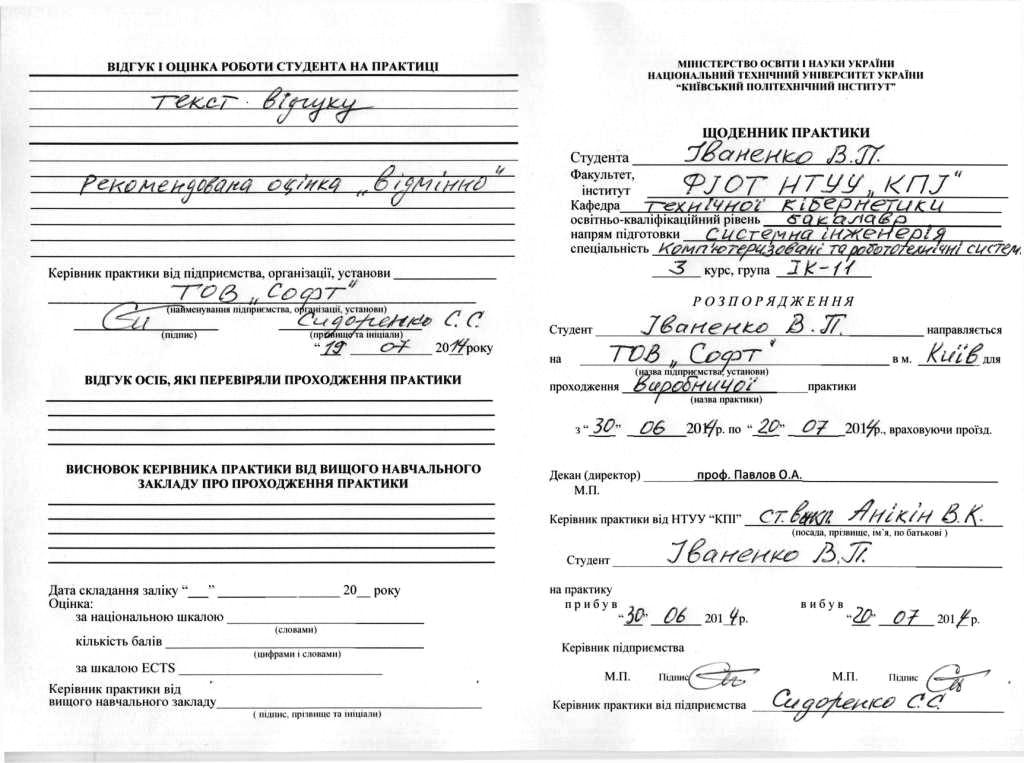 ВІДГУК І ОЦІНКА РОБОТИ СТУДЕНТА НА ПРАКТИЦІ
текст відгуку
Рекомендована оцінка „Відмінно“
Керівник практики від підприємства, організації, установи
ТОВ „Софт“
(найменування підприємства, організації, установи)
Сидоренко С. С.
(підпис) (прізвище та ініціали)
“ 19 ” 07 2014 року
ВІДГУК ОСІБ, ЯКІ ПЕРЕВІРЯЛИ ПРОХОДЖЕННЯ ПРАКТИКИ
ВИСНОВОК КЕРІВНИКА ПРАКТИКИ ВІД ВИЩОГО НАВЧАЛЬНОГО
ЗАКЛАДУ ПРО ПРОХОДЖЕННЯ ПРАКТИКИ
Дата складання заліку “___” ____________ 20__ року
Оцінка:
за національною шкалою
(словами)
кількість балів
(цифрами і словами)
за шкалою ECTS
Керівник практики від
вищого навчального закладу
( підпис, прізвище та ініціали)
МІНІСТЕРСТВО ОСВІТИ І НАУКИ УКРАЇНИ
НАЦІОНАЛЬНИЙ ТЕХНІЧНИЙ УНІВЕРСИТЕТ УКРАЇНИ
“КИЇВСЬКИЙ ПОЛІТЕХНІЧНИЙ ІНСТИТУТ”
ЩОДЕННИК ПРАКТИКИ
Студента Іваненко В.П.
Факультет,
інститут ФІОТ НТУУ „КПІ“
Кафедра технічної кібернетики
освітньо-кваліфікаційний рівень бакалавр
напрям підготовки системна інженерія
спеціальність Комп'ютеризовані та робототехнічні систем
3 курс, група ІК-11
РОЗПОРЯДЖЕННЯ
Студент Іваненко В.П. направляється
на ТОВ „Софт“ в м. Київ для
(назва підприємства, установи)
проходження Виробничої практики
(назва практики)
з “ 30 ” 06 2014 р. по “ 20 ” 07 2014 р., враховуючи проїзд.
Декан (директор) проф. Павлов О.А.
М.П.
Керівник практики від НТУУ “КПІ” ст. викл. Анікін В.К.
(посада, прізвище, ім’я, по батькові )
Студент Іваненко В.П.
на практику
прибув вибув
“30” 06 2014 р. “20” 07 2014 р.
Керівник підприємства
М.П. Підпис М.П. Підпис
Керівник практики від підприємства Сидоренко С.С.